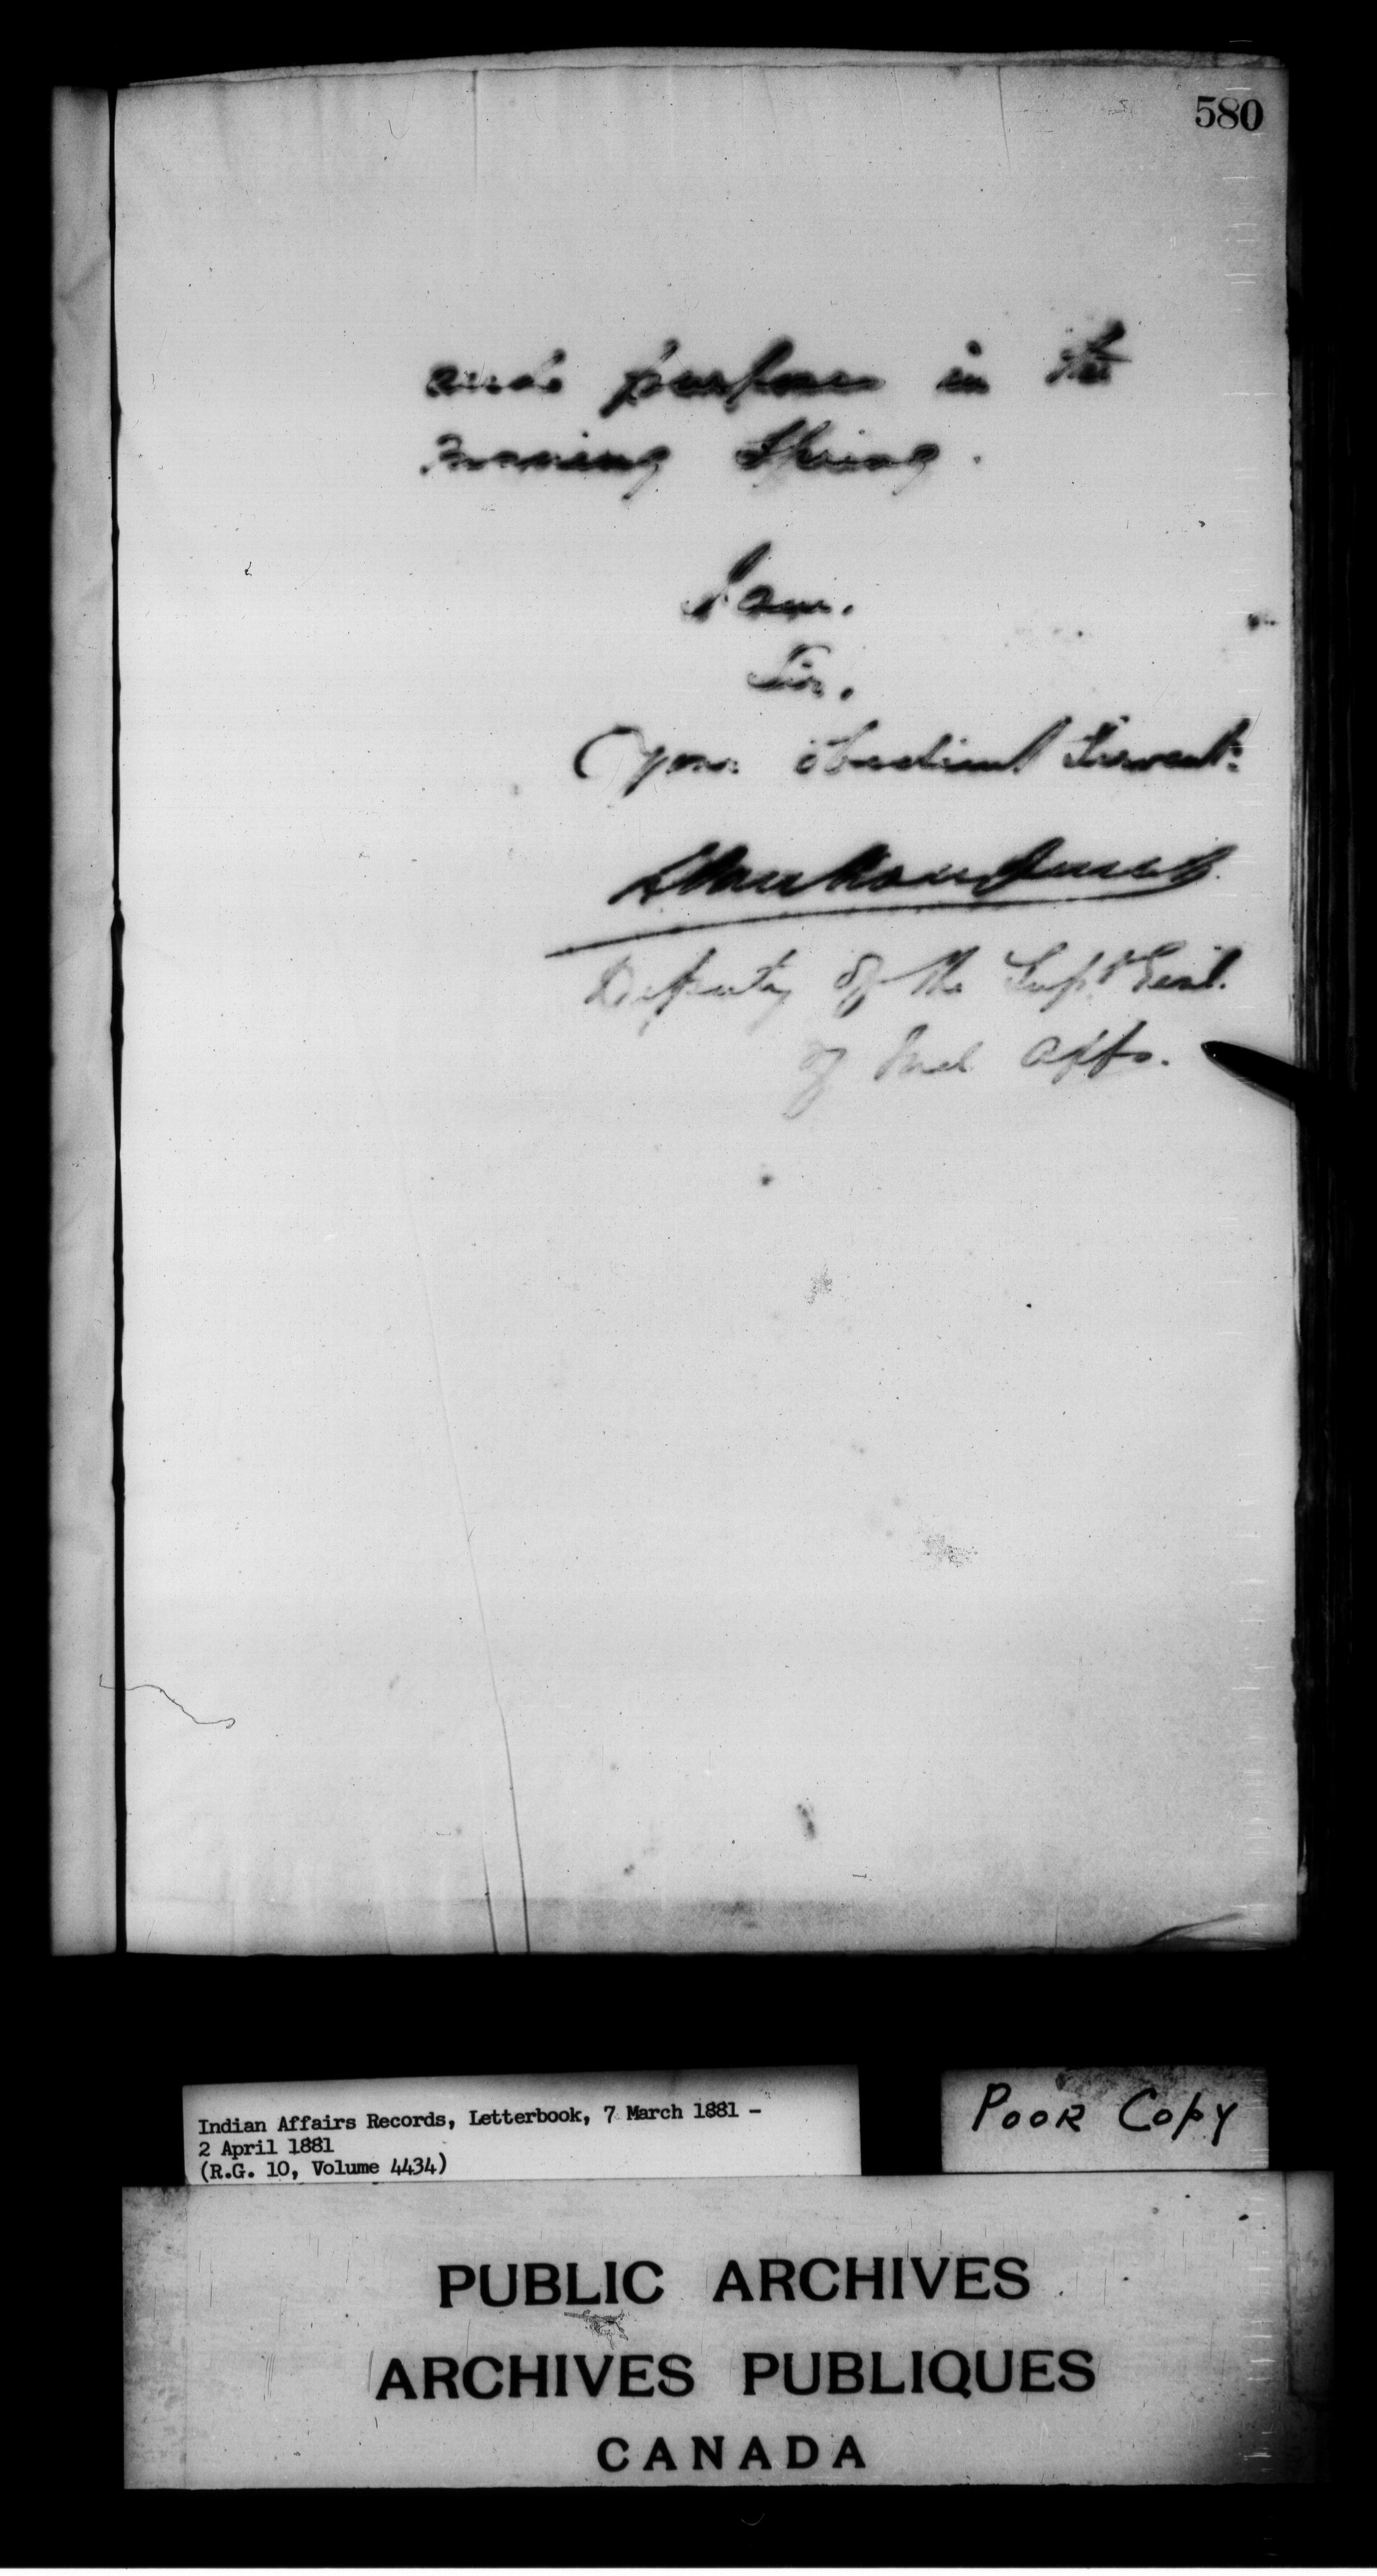 580
purpose in the
Spring.
I am.
Sir.
Your obedient Servant.
L VanKoughnet
Deputy of the Supt Genl.
of Ind Affs.
Indian Affairs Records, Letterbook, 7 March 1881 -
2 April 1881
(R.G. 10, Volume 4434)
POOR COPY
PUBLIC ARCHIVES
ARCHIVES PUBLIQUES
CANADA